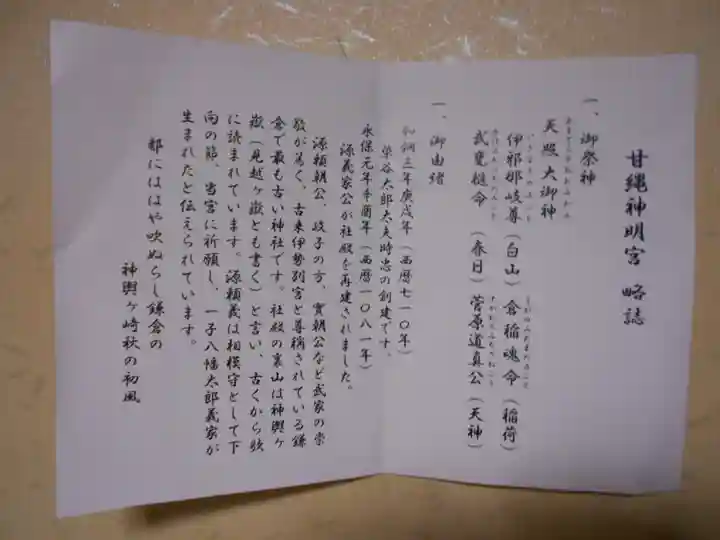 甘縄神明宮 略誌
一、御祭神
天照大御神
伊邪那岐尊(白山) 倉稲魂命(稲荷)
武甕槌命(春日) 菅原道真公(天神)
一、御由緒
和銅三年庚戌年(西暦七一〇年)
染谷太郎太夫時忠の創建です。
永保元年辛酉年(西暦一〇八一年)
源義家公が社殿を再建されました。
源頼朝公、政子の方、實朝公など武家の崇
敬が篤く、古来伊勢別宮と尊稱されている鎌
倉で最も古い神社です。社殿の裏山は神輿ヶ
嶽(見越ヶ嶽とも書く)と言い、古くから歌
に読まれています。源頼義は相模守として下
向の節、当宮に祈願し、一子八幡太郎義家が
生まれたと伝えられています。
都にははや吹ぬらし鎌倉の
神輿ヶ崎秋の初風